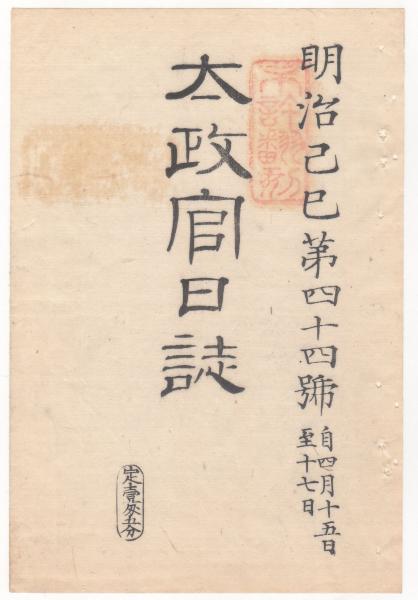 明治己巳第四十四號
自四月十五日
至十七日
太政官日誌
定壹匁五分
不許翻刻